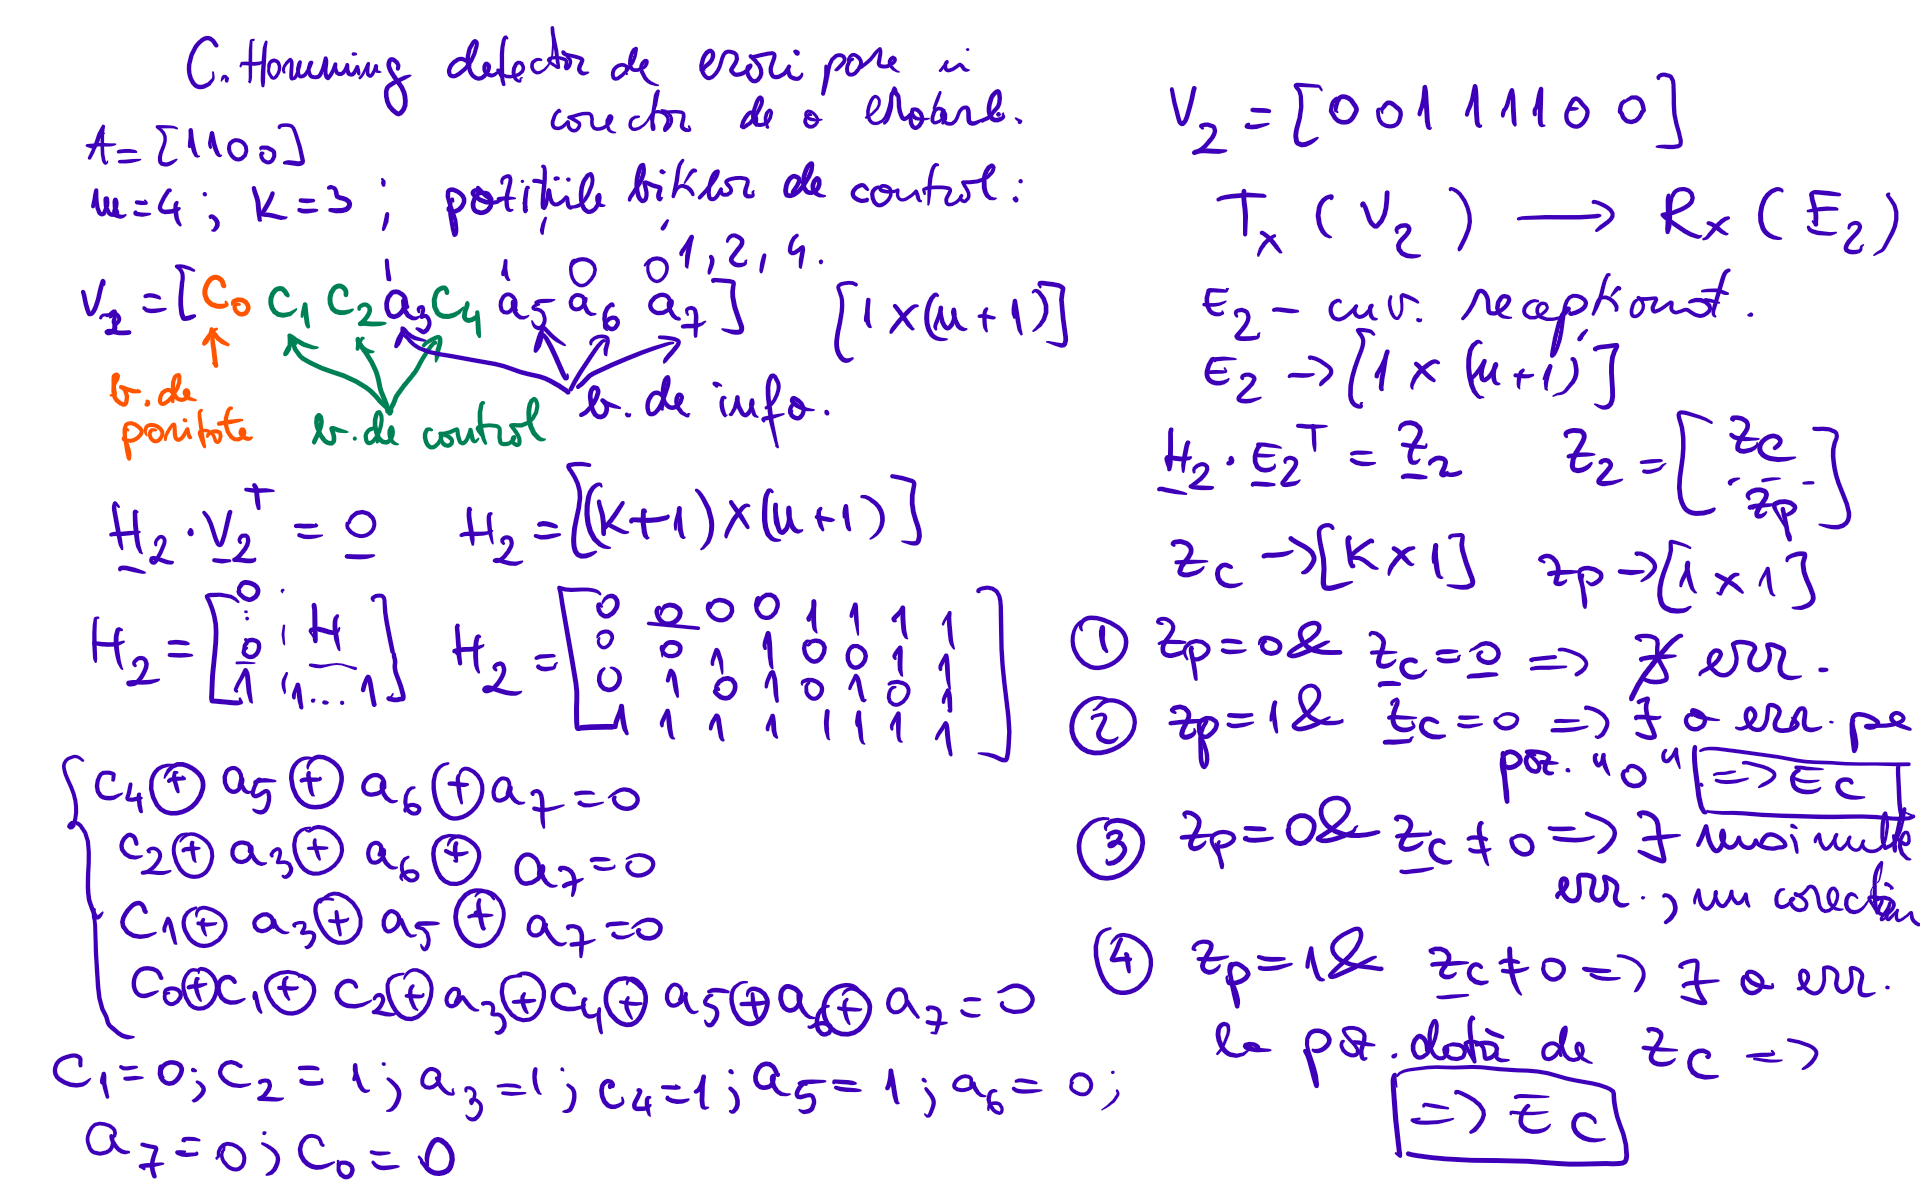 C. Hamming detector de erori pare și
corector de o eroare.
A = [1 1 0 0]
m=4 ; K=3 ; pozițiile biților de control:
1, 2, 4.
1 1 0 0
V2 = [C0 C1 C2 a3 C4 a5 a6 a7] [1 x (n+1)]
b. de paritate
b. de control
b. de info.
H2 · V2^T = 0 H2 = [(K+1) x (n+1)]
H2 = [0 ⋮ 0 H
1 1 ... 1]
H2 = [0 0 0 0 1 1 1 1
0 0 1 1 0 0 1 1
0 1 0 1 0 1 0 1
1 1 1 1 1 1 1 1]
C4 ⊕ a5 ⊕ a6 ⊕ a7 = 0
C2 ⊕ a3 ⊕ a6 ⊕ a7 = 0
C1 ⊕ a3 ⊕ a5 ⊕ a7 = 0
C0 ⊕ C1 ⊕ C2 ⊕ a3 ⊕ C4 ⊕ a5 ⊕ a6 ⊕ a7 = 0
C1 = 0; C2 = 1; a3 = 1; C4 = 1; a5 = 1; a6 = 0;
a7 = 0; C0 = 0
V2 = [0 0 1 1 1 1 0 0]
Tx (V2) → Rx (E2)
E2 – cuv. recepționat.
E2 → [1 x (n+1)]
H2 · E2^T = Z2 Z2 = [Zc
Zp]
Zc → [K x 1] Zp → [1 x 1]
① Zp = 0 & Zc = 0 => ∄ err.
② Zp = 1 & Zc = 0 => ∃ o err. pe
poz. "0" => EC
③ Zp = 0 & Zc ≠ 0 => ∃ mai multe
err., nu corectăm
④ Zp = 1 & Zc ≠ 0 => ∃ o err.
la poz. dată de Zc =>
=> EC